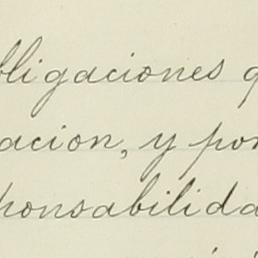 bligaciones q
acion, y por
ponsabilida